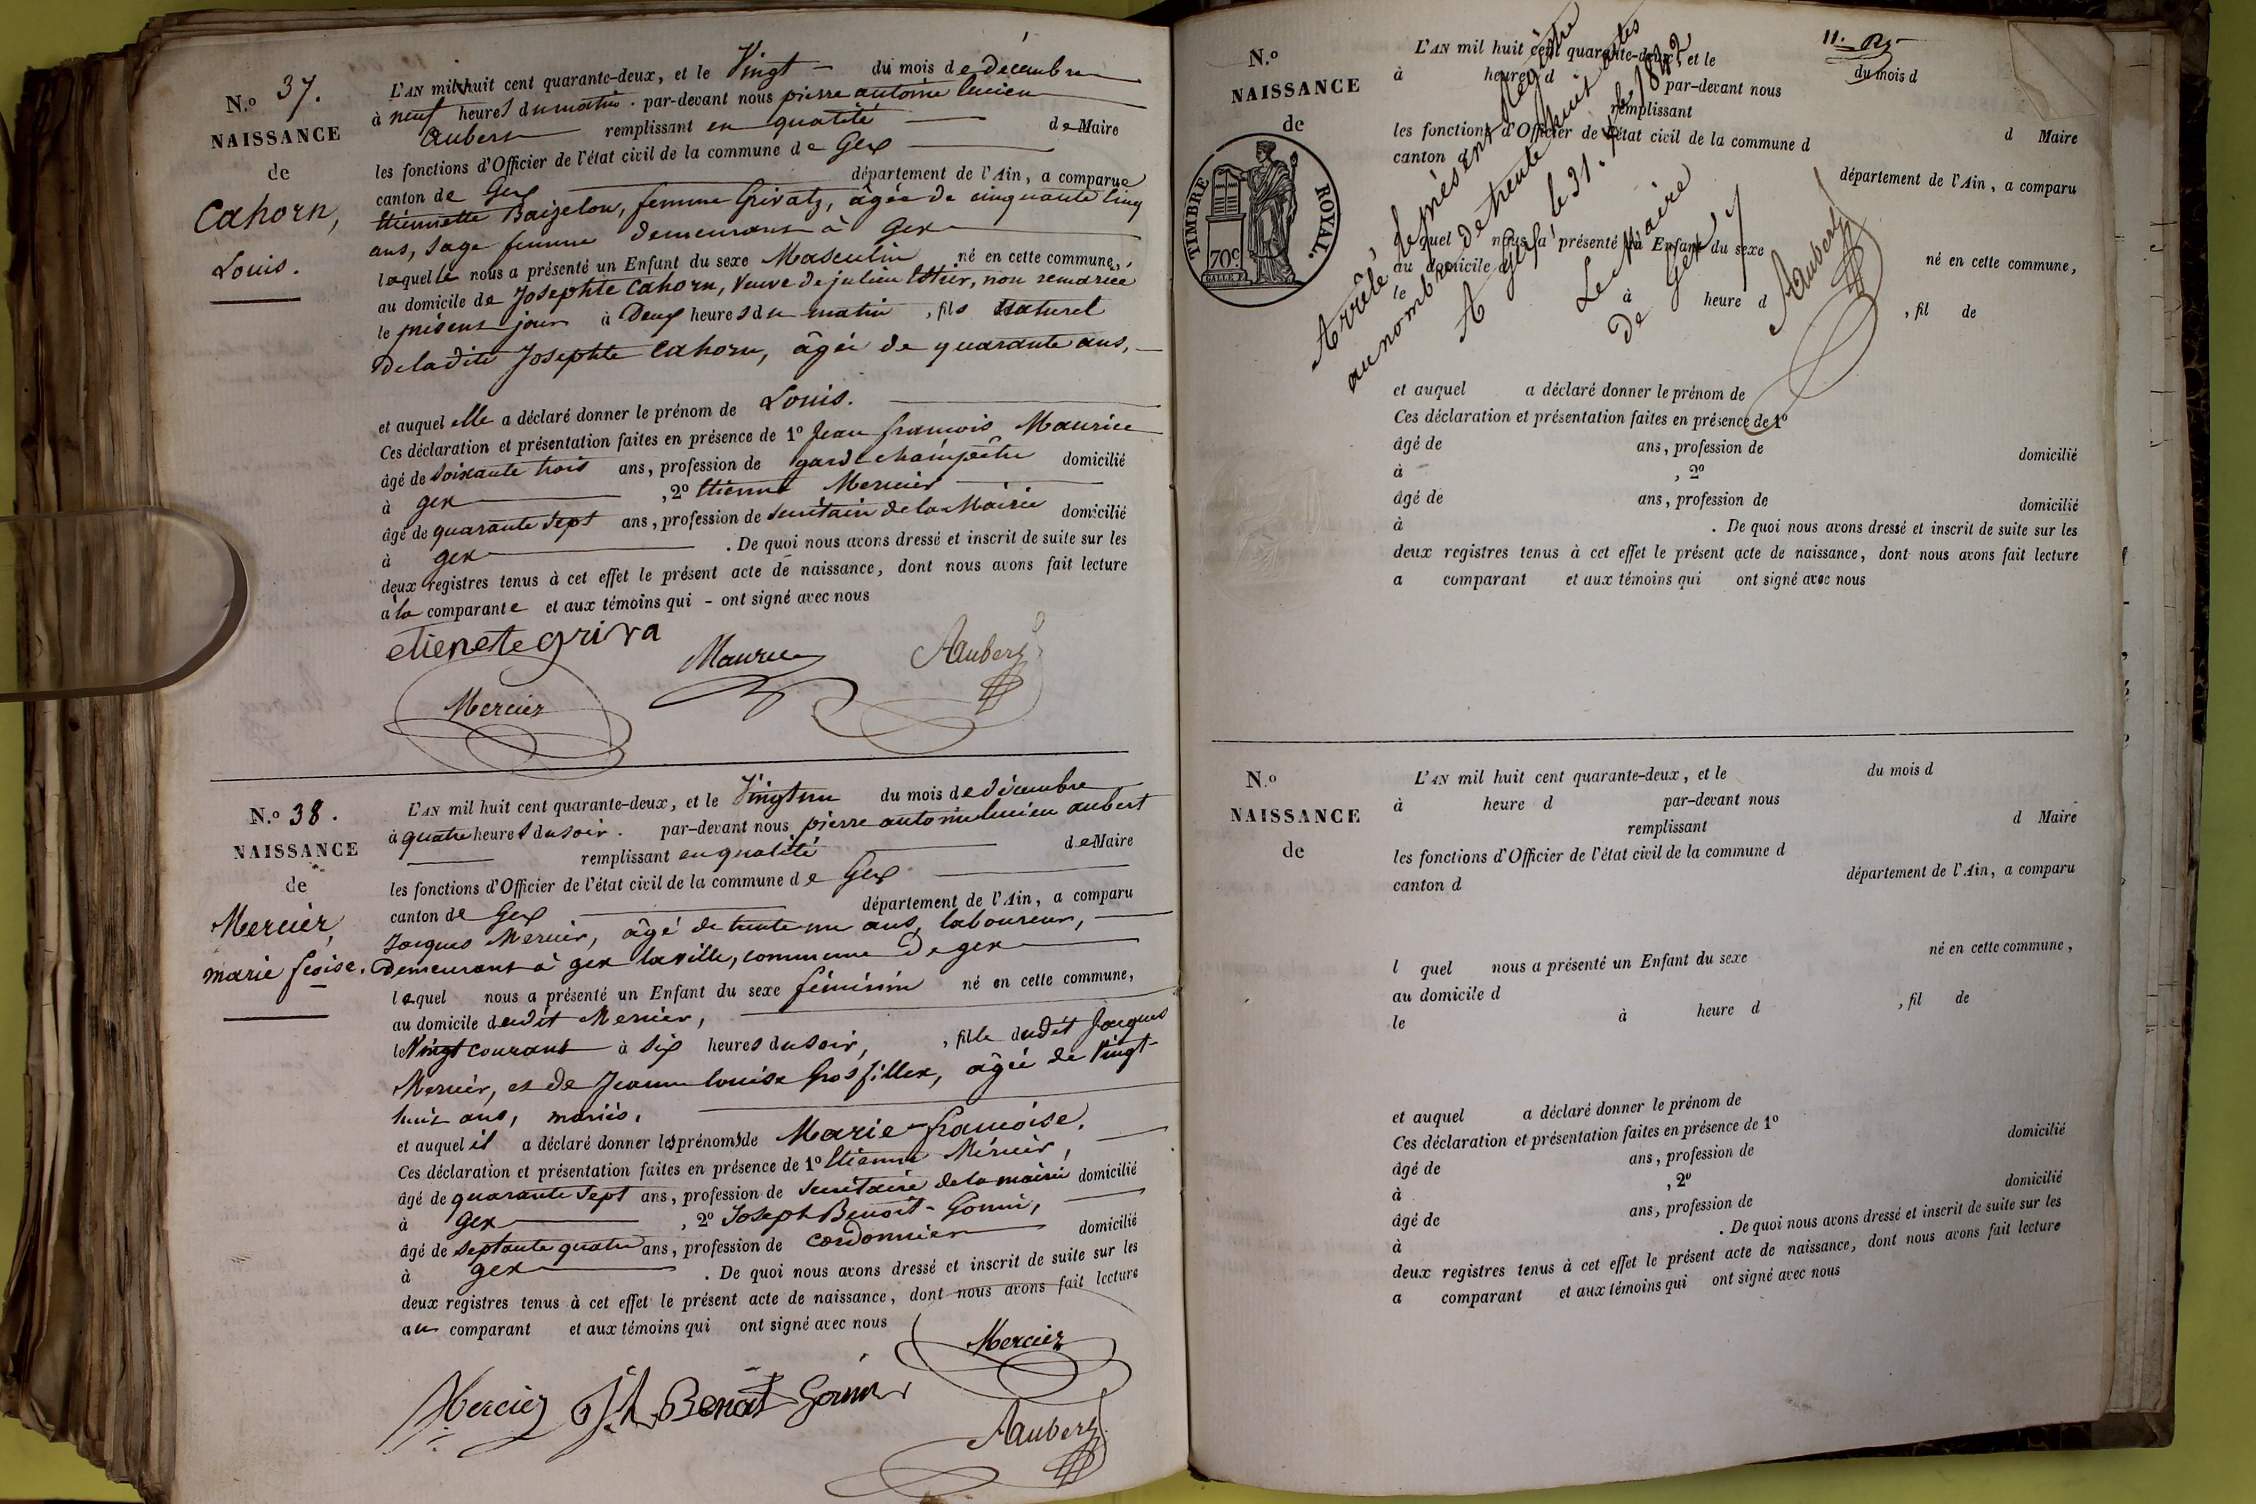 N.o 37.
NAISSANCE
de
Cahorn,
Louis.
L'AN mil huit cent quarante-deux, et le Vingt du mois de décembre
à neuf heures du matin. par-devant nous pierre antoine lucien
Aubert remplissant en qualité de Maire
les fonctions d'Officier de l'état civil de la commune de Gex
canton de Gex département de l'Ain, a comparue
étiennette Baizelon, femme Grivatz, âgée de cinquante cinq
ans, sage femme demeurant à Gex
laquelle nous a présenté un Enfant du sexe Masculin né en cette commune,
au domicile de Josephte Cahorn, Veuve de julien, non remariée
le présent jour à Deux heures du matin, fils Naturel
de ladite Josephte Cahorn, âgée de quarante ans,
et auquel elle a déclaré donner le prénom de Louis.
Ces déclaration et présentation faites en présence de 1o Jean françois Maurice
âgé de soixante trois ans, profession de garde champêtre domicilié
à gex, 2o étienne Mercier
âgé de quarante sept ans, profession de secrétaire de la Mairie domicilié
à gex. De quoi nous avons dressé et inscrit de suite sur les
deux registres tenus à cet effet le présent acte de naissance, dont nous avons fait lecture
à la comparante et aux témoins qui - ont signé avec nous
etienete griva
Maurice
Aubert
Mercier
N.o 38.
NAISSANCE
de
Mercier,
marie fcoise.
L'AN mil huit cent quarante-deux, et le Vingt un du mois de décembre
à quatre heures du soir. par-devant nous pierre antoine lucien aubert
remplissant en qualité de Maire
les fonctions d'Officier de l'état civil de la commune de Gex
canton de Gex département de l'Ain, a comparu
Jacques Mercier, âgé de trente un ans, laboureur,
demeurant à gex la ville, commune de gex
lequel nous a présenté un Enfant du sexe féminin né en cette commune,
au domicile dudit Mercier,
le Vingt courant à six heures du soir, , fille dudit Jacques
Mercier, et de Jeanne louise Grosfillex, âgée de Vingt-
huit ans, mariés.
et auquel il a déclaré donner les prénoms de Marie-francoise.
Ces déclaration et présentation faites en présence de 1o étienne Mercier,
âgé de quarante sept ans, profession de secrétaire de la mairie domicilié
à gex, 2o Joseph Benoit-Gonin,
âgé de septante quatre ans, profession de cordonnier domicilié
à gex. De quoi nous avons dressé et inscrit de suite sur les
deux registres tenus à cet effet le présent acte de naissance, dont nous avons fait lecture
au comparant et aux témoins qui ont signé avec nous
Mercier
Mercier Jh Benoit Gonin
Aubert
11.
N.o
NAISSANCE
de
TIMBRE ROYAL.
70c
L'AN mil huit cent quarante-deux, et le du mois d
à heure d par-devant nous
remplissant d Maire
les fonctions d'Officier de l'état civil de la commune d
canton d département de l'Ain, a comparu
l quel nous a présenté un Enfant du sexe né en cette commune,
au domicile d
le à heure d , fil de
et auquel a déclaré donner le prénom de
Ces déclaration et présentation faites en présence de 1o
âgé de ans, profession de domicilié
à , 2o
âgé de ans, profession de domicilié
à . De quoi nous avons dressé et inscrit de suite sur les
deux registres tenus à cet effet le présent acte de naissance, dont nous avons fait lecture
a comparant et aux témoins qui ont signé avec nous
Arrêté le présent Registre
au nombre de trente huit actes
A Gex le 31. Xbre 1842
Le Maire
de Gex
Aubert
N.o
NAISSANCE
de
L'AN mil huit cent quarante-deux, et le du mois d
à heure d par-devant nous
remplissant d Maire
les fonctions d'Officier de l'état civil de la commune d
canton d département de l'Ain, a comparu
l quel nous a présenté un Enfant du sexe né en cette commune,
au domicile d
le à heure d , fil de
et auquel a déclaré donner le prénom de
Ces déclaration et présentation faites en présence de 1o
âgé de ans, profession de domicilié
à , 2o
âgé de ans, profession de domicilié
à . De quoi nous avons dressé et inscrit de suite sur les
deux registres tenus à cet effet le présent acte de naissance, dont nous avons fait lecture
a comparant et aux témoins qui ont signé avec nous